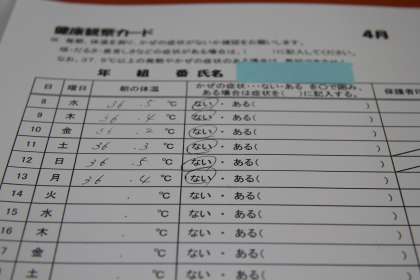 健康観察カード 4月
年 組 番 氏名
日 曜日 朝の体温 かぜの症状・・ない・ある を〇で囲み、
ある場合は症状を( )に記入する。
8 水 36.5 ℃ ない ・ ある( )
9 木 36.4 ℃ ない ・ ある( )
10 金 36.2 ℃ ない ・ ある( )
11 土 36.3 ℃ ない ・ ある( )
12 日 36.5 ℃ ない ・ ある( )
13 月 36.4 ℃ ない ・ ある( )
14 火 . ℃ ない ・ ある( )
15 水 . ℃ ない ・ ある( )
16 木 . ℃ ない ・ ある( )
金 . ℃ ない ・ ある( )
土 ℃ ない ・ ある(